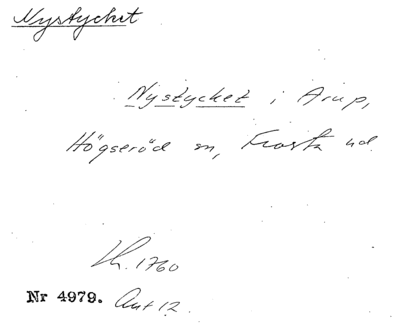 Nystycket
Nystycket i Arup,
Högseröd sn, Frosta hd.
Lh. 1760
Nr 4979. Aut 12.